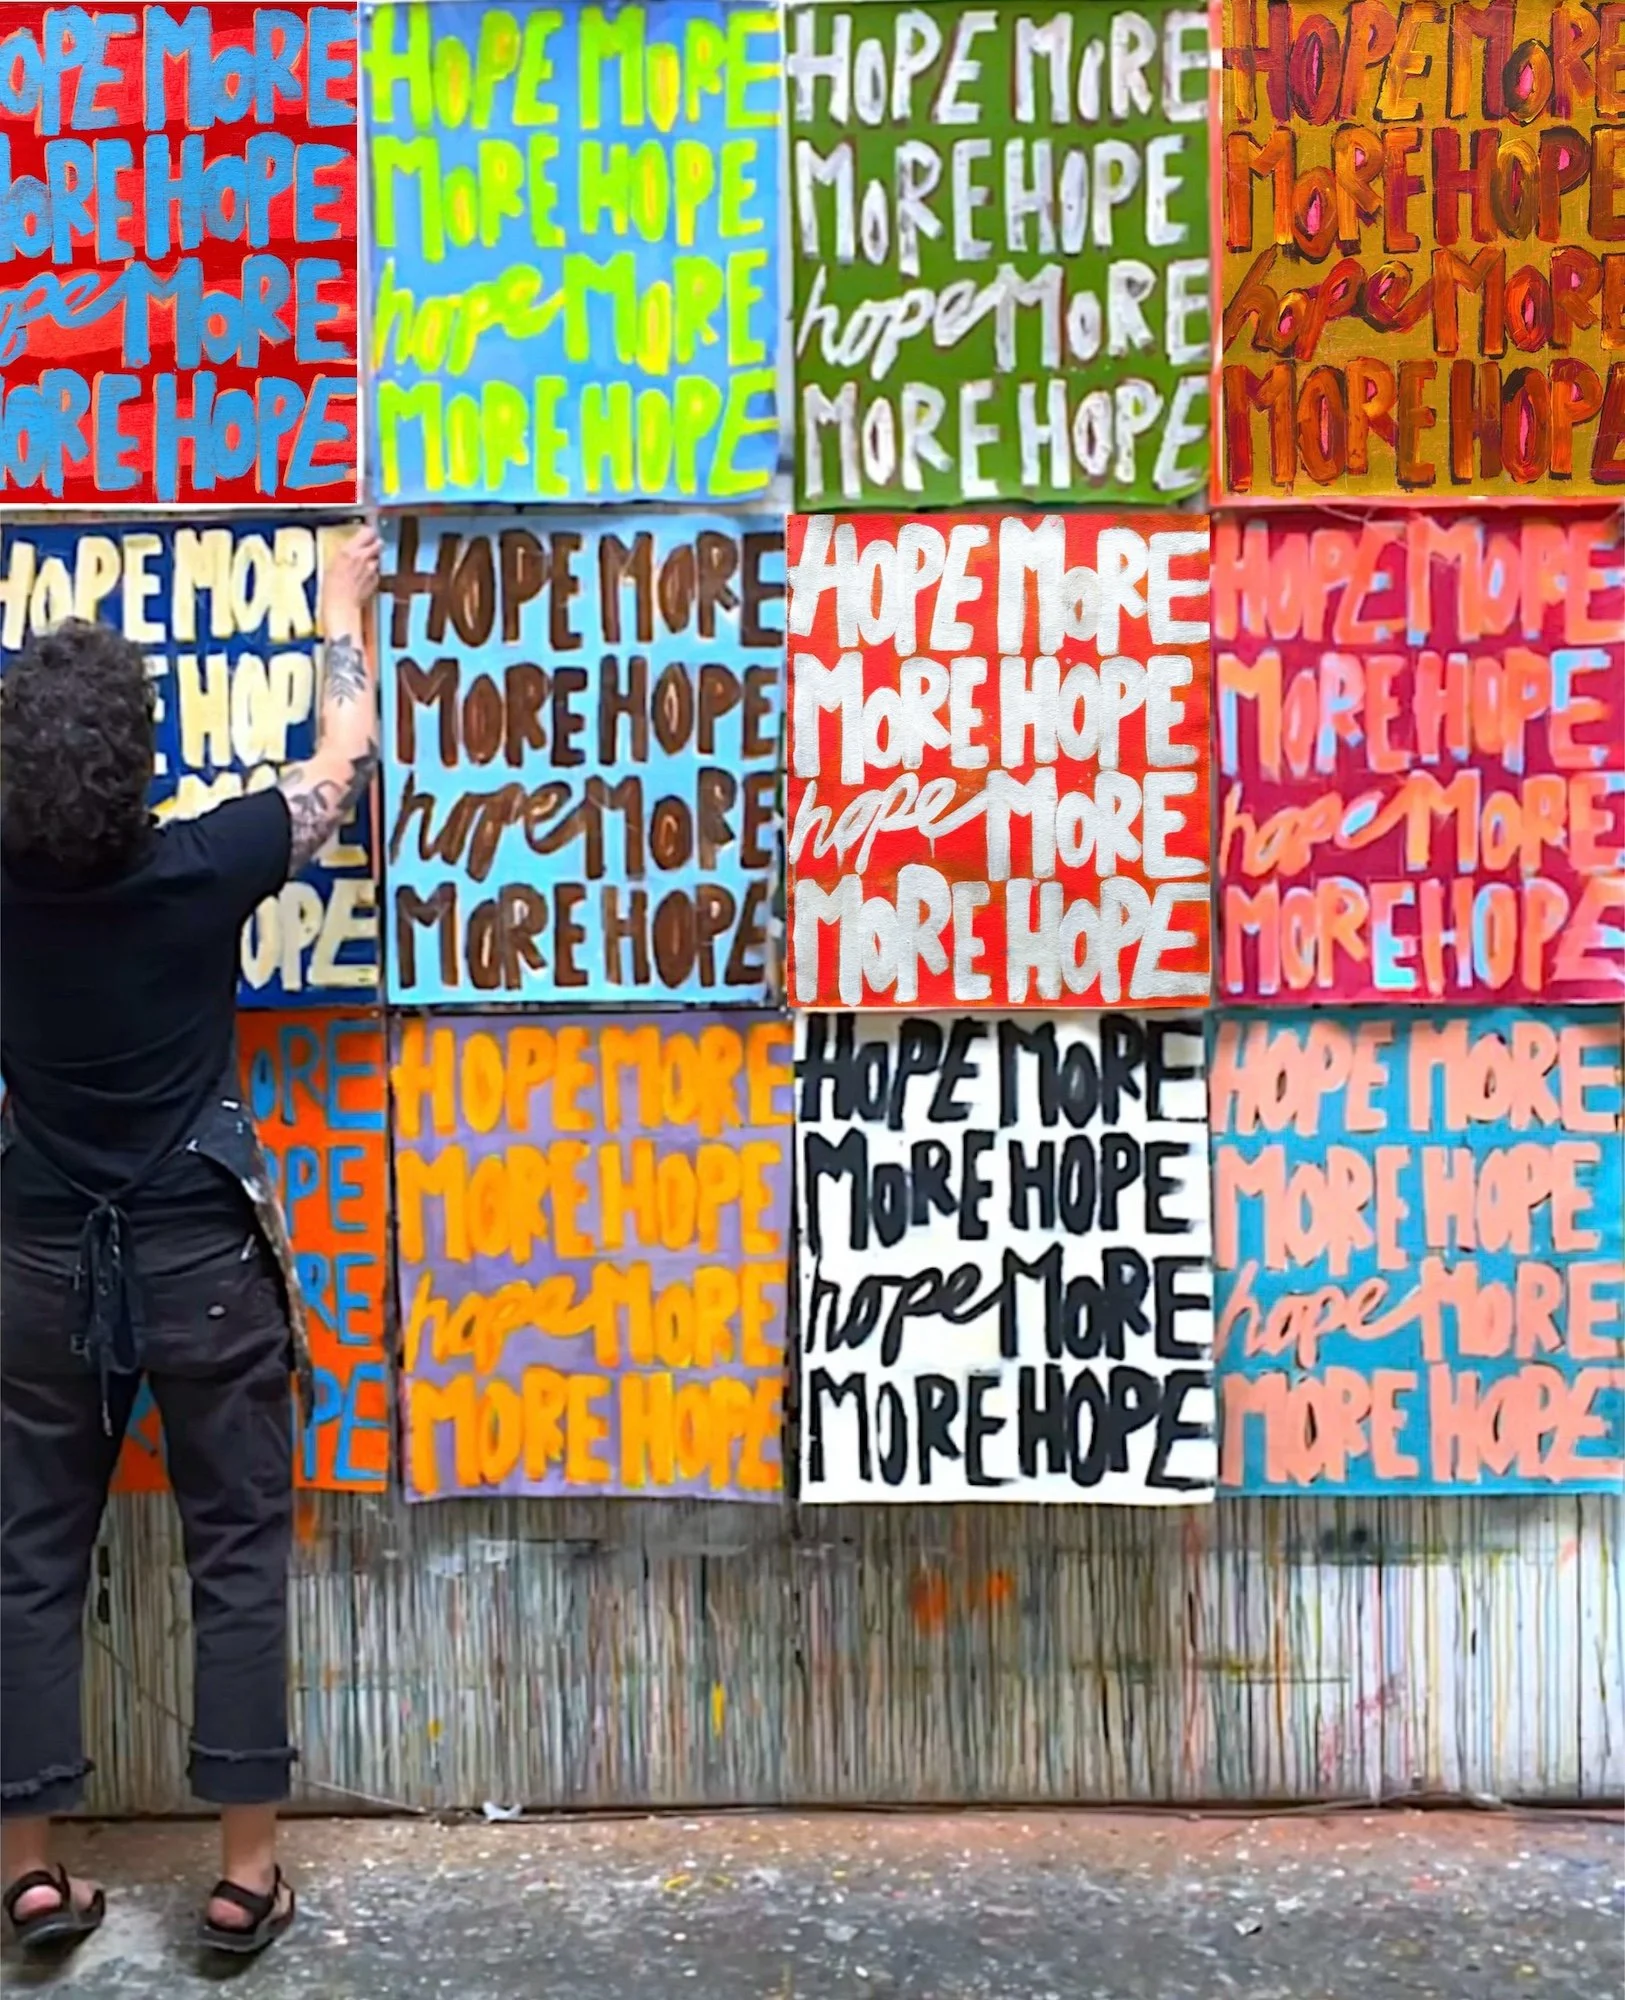 OPE MORE
ORE HOPE
ope MORE
ORE HOPE
HOPE MORE
MORE HOPE
hope MORE
MORE HOPE
HOPE MORE
MORE HOPE
hope MORE
MORE HOPE
HOPE MORE
MORE HOPE
hope MORE
MORE HOPE
HOPE MOR
E HOP
OPE
HOPE MORE
MORE HOPE
hope MORE
MORE HOPE
HOPE MORE
MORE HOPE
hope MORE
MORE HOPE
HOPE MORE
MORE HOPE
hope MORE
MORE HOPE
ORE
OPE
RE
PE
HOPE MORE
MORE HOPE
hope MORE
MORE HOPE
HOPE MORE
MORE HOPE
hope MORE
MORE HOPE
HOPE MORE
MORE HOPE
hope MORE
MORE HOPE